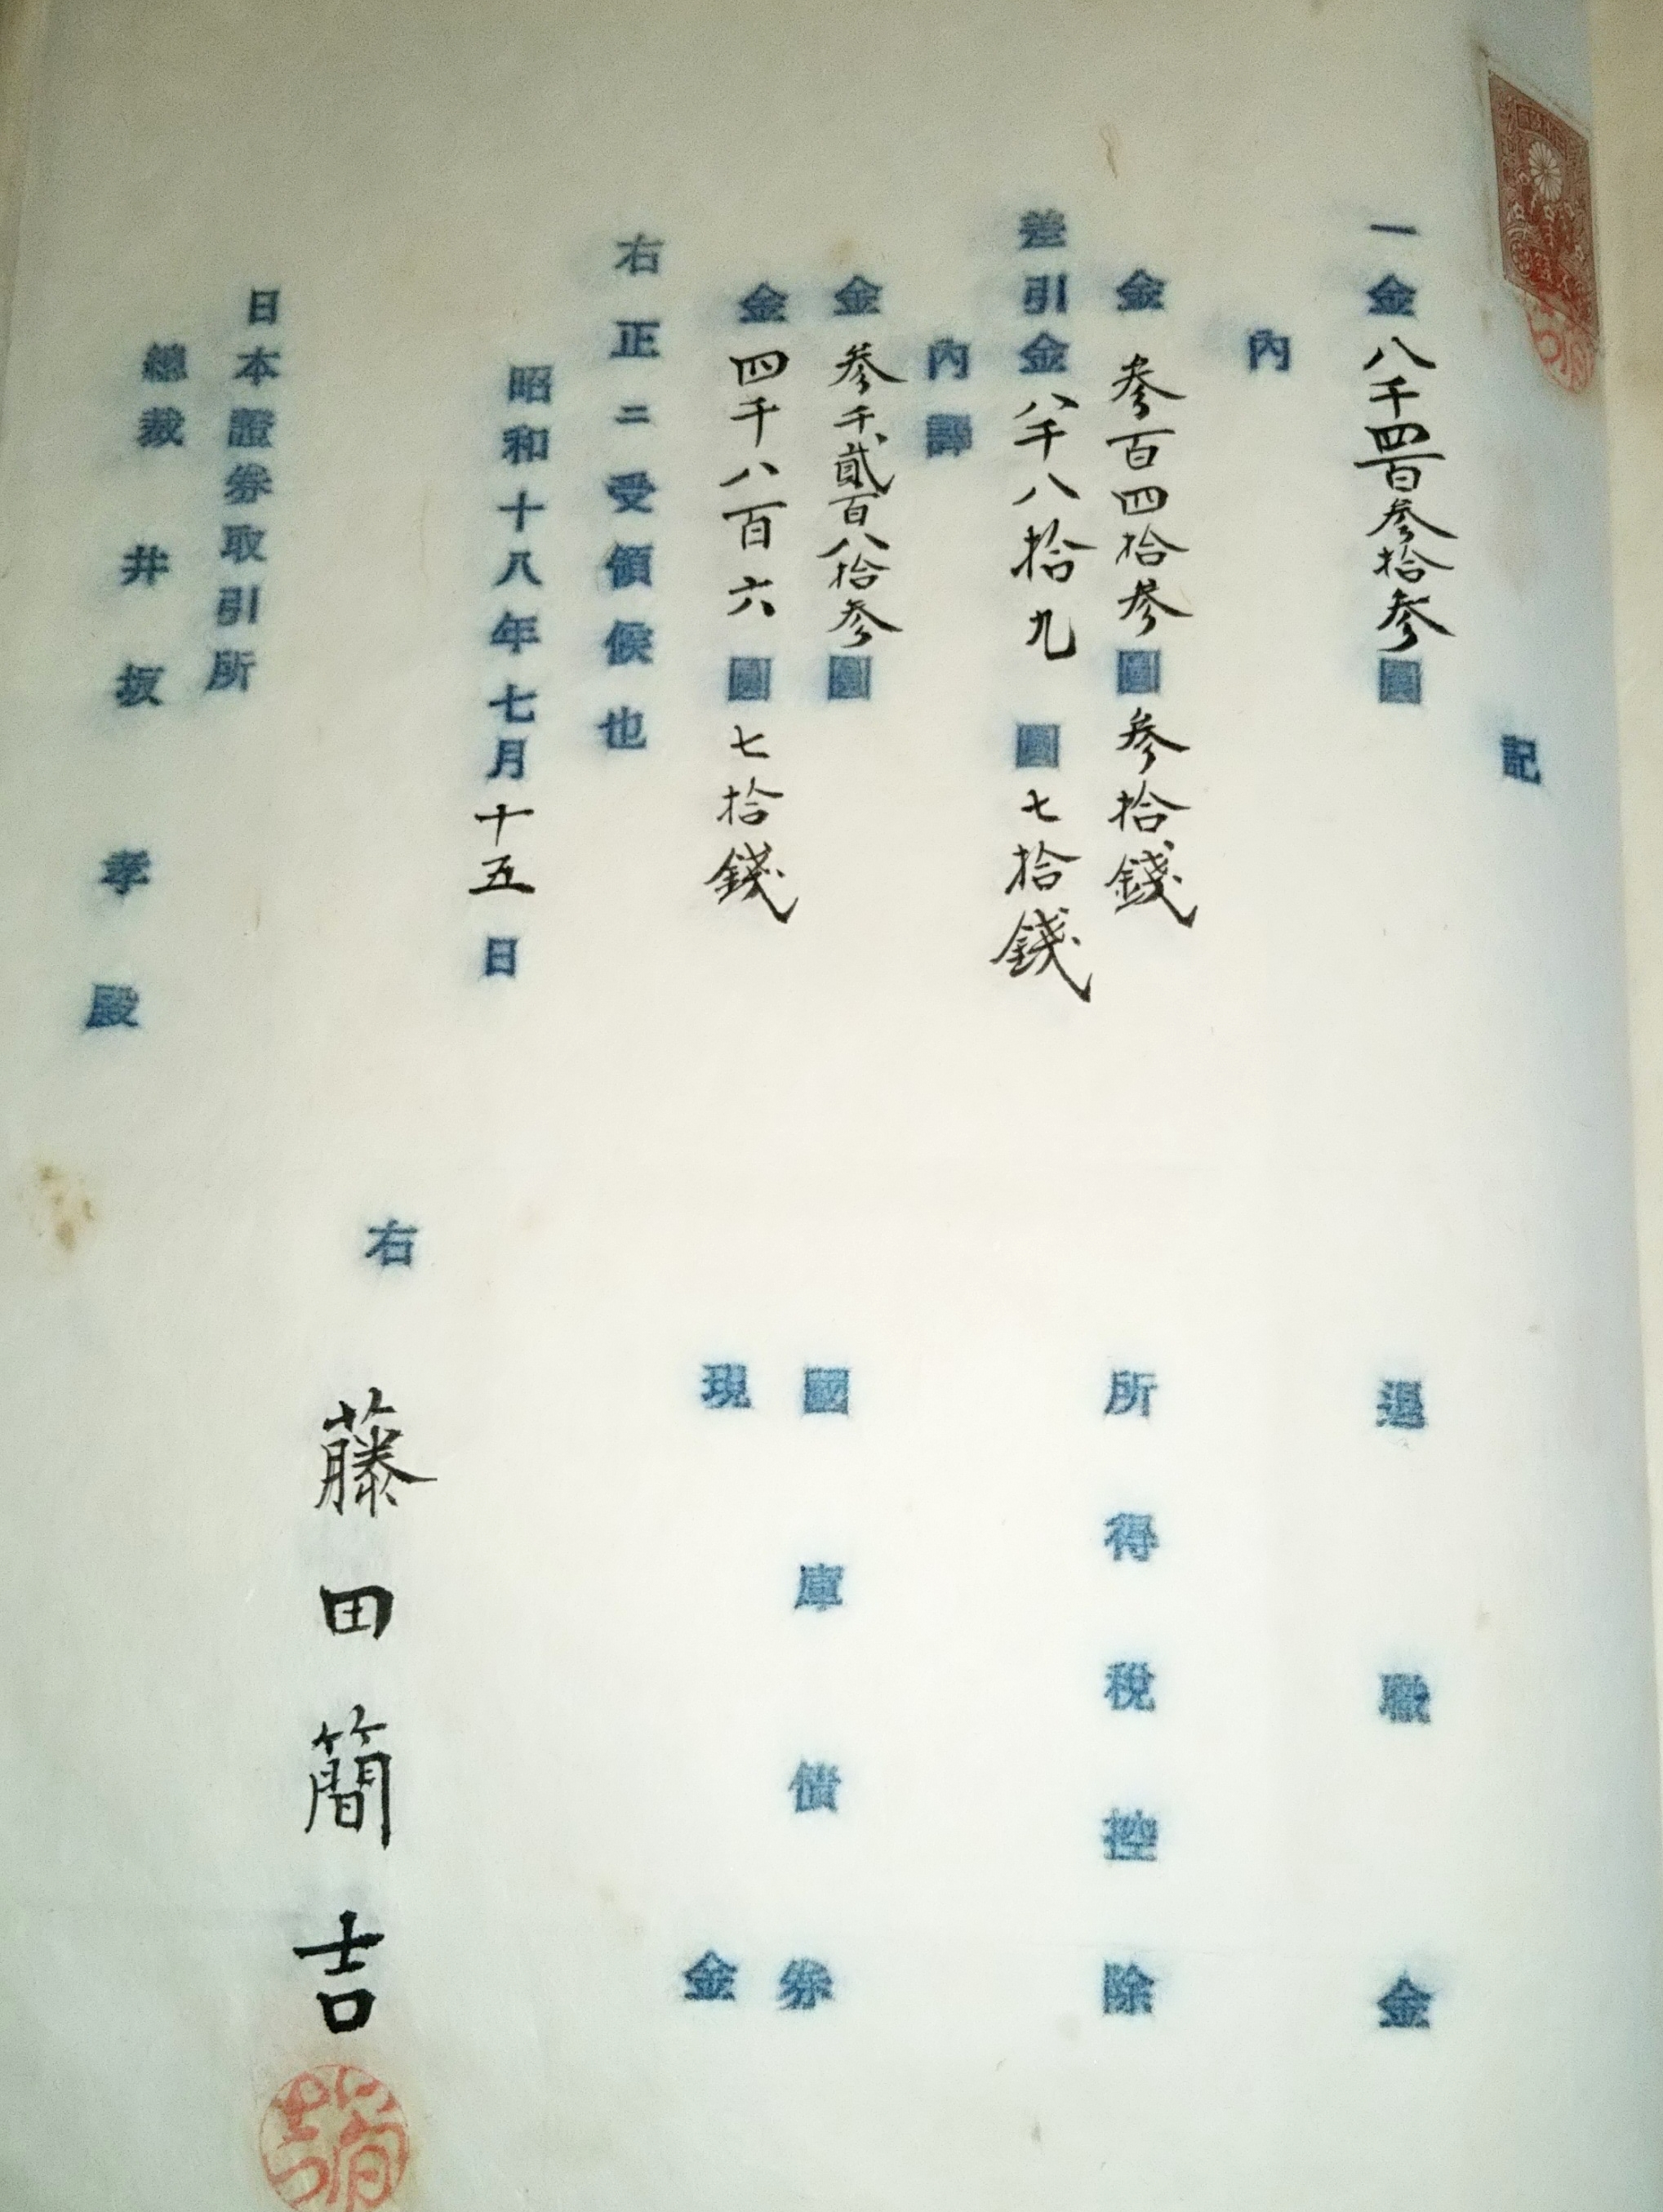 記
一金八千四百参拾参圓 退職金
內
金参百四拾参圓参拾錢 所得税控除
差引金八千八拾九圓七拾錢
內譯
金参千貳百八拾参圓 國庫債券
金四千八百六圓七拾錢 現金
右正ニ受領候也
昭和十八年七月十五日
右 藤田簡吉
日本證券取引所
總裁 井坂孝殿